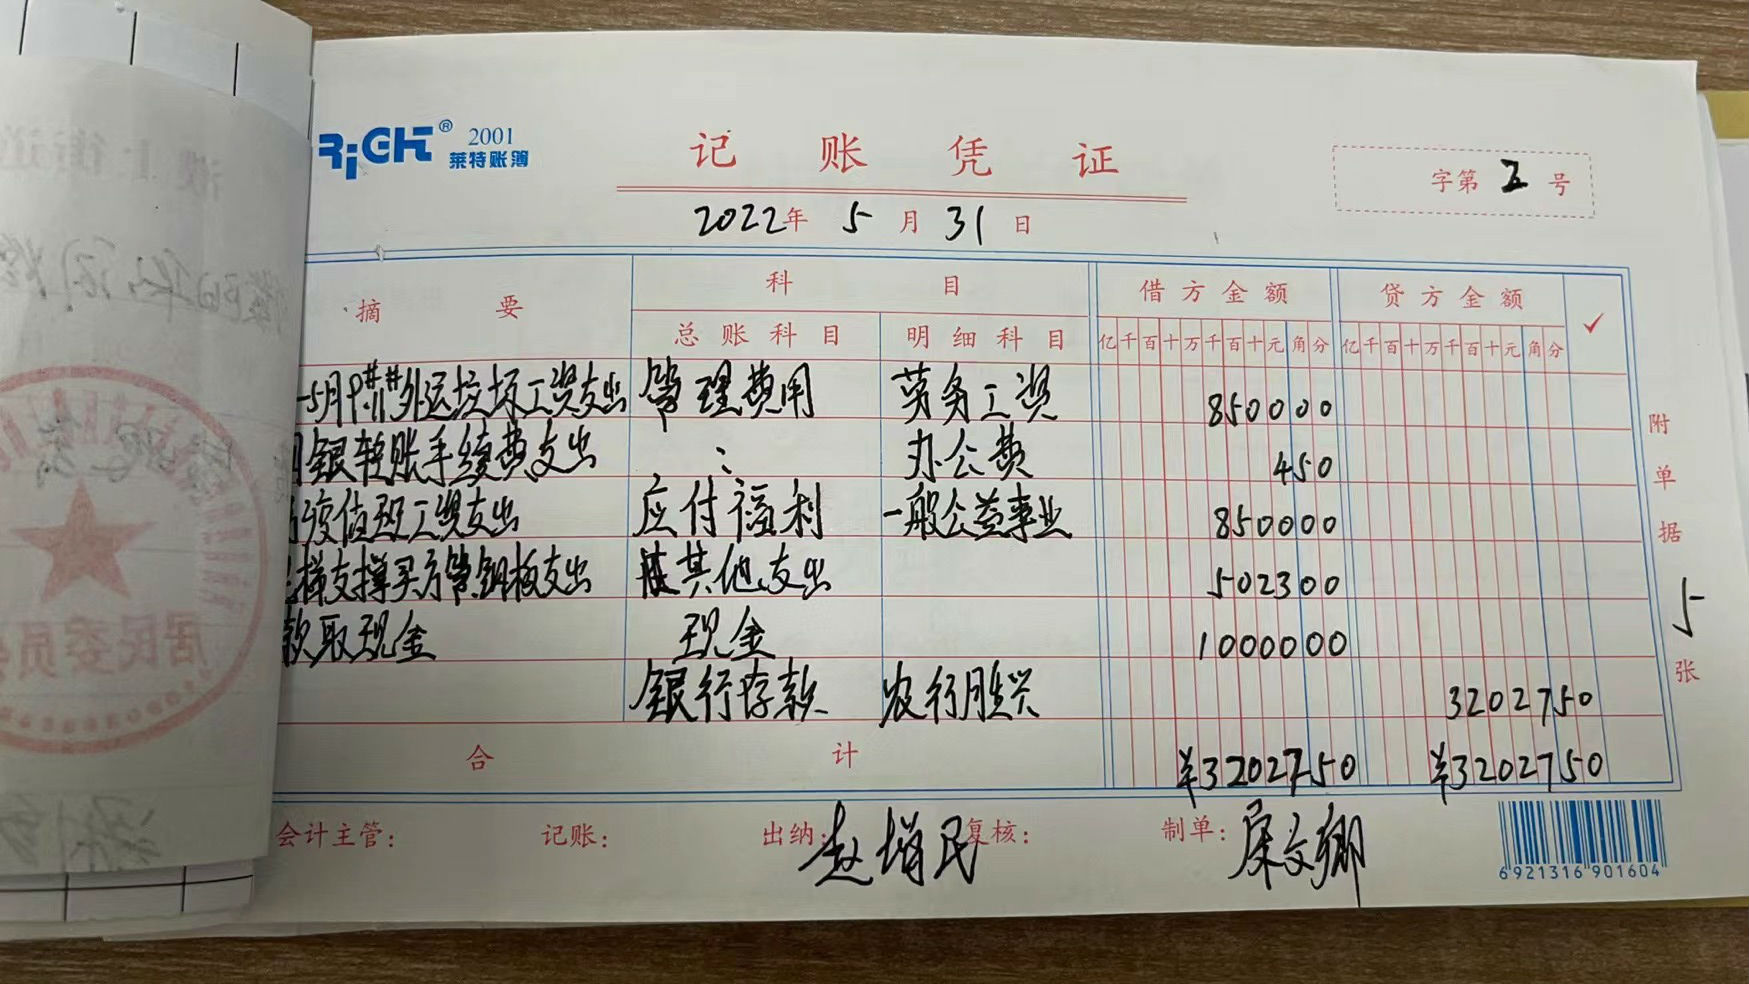 RiGHT® 2001
莱特账簿
记账凭证
字第 2 号
2022年 5月 31日
摘要 科目 借方金额 贷方金额 ✓
总账科目 明细科目 亿千百十万千百十元角分 亿千百十万千百十元角分
-5月 外运垃圾工资支出 管理费用 劳务工资 850000
银转账手续费支出 : 办公费 450
值班工资支出 应付福利 一般公益事业 850000
梯支撑买方管钢板支出 其他支出 502300
款取现金 现金 1000000
银行存款 农行胜兴 3202750
合计 ¥3202750 ¥3202750
附单据 5 张
会计主管: 记账: 出纳: 赵增民 复核: 制单:
6 921316 901604
居民委员